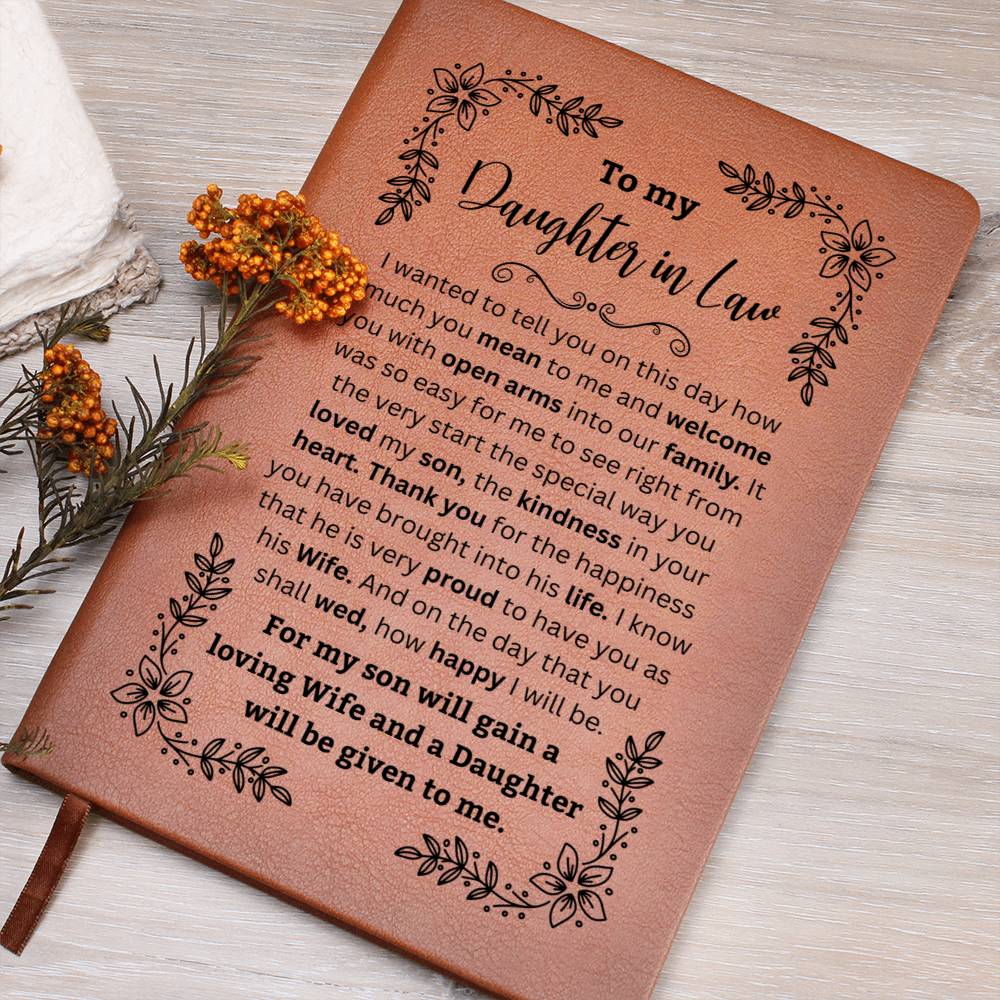 To my
Daughter in Law
I wanted to tell you on this day how
much you mean to me and welcome
you with open arms into our family. It
was so easy for me to see right from
the very start the special way you
loved my son, the kindness in your
heart. Thank you for the happiness
you have brought into his life. I know
that he is very proud to have you as
his Wife. And on the day that you
shall wed, how happy I will be.
For my son will gain a
loving Wife and a Daughter
will be given to me.